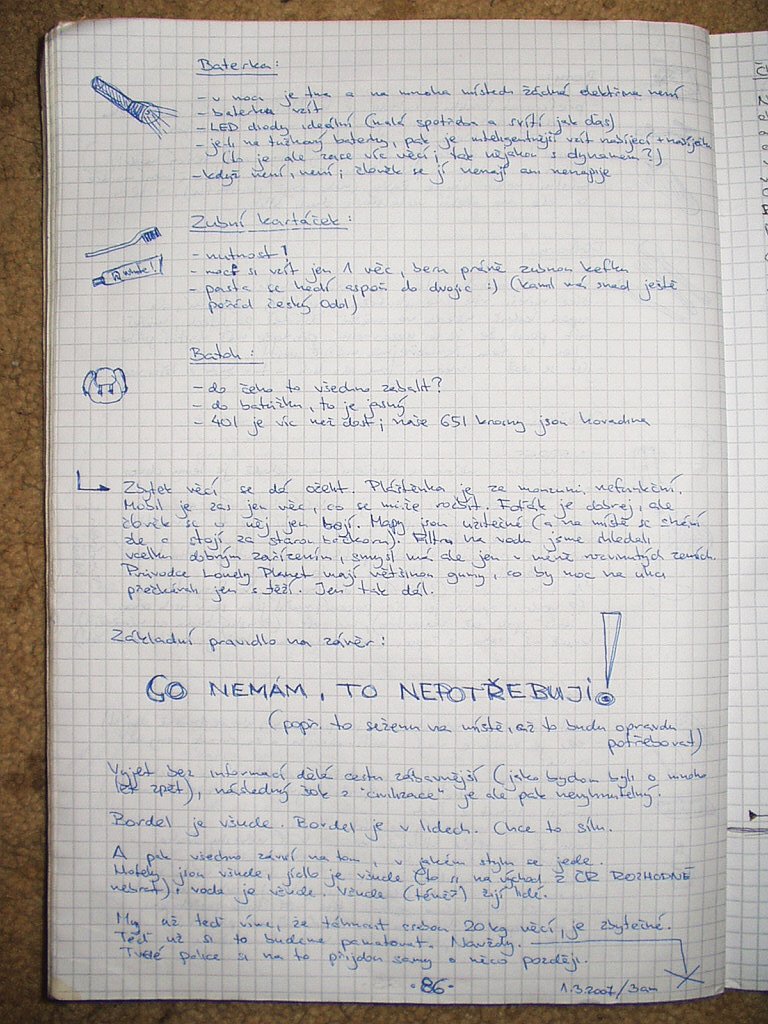 Baterka:
- v noci je tma a na mnoha místech žádná elektřina není
- baterka vzít
- LED diody ideální (malá spotřeba a svítí jak ďas)
- je-li na tužkový baterky, pak je inteligentnější vzít nabíjecí + nabíječku
(to je ale zase víc věcí; tak nějakou s dynamem?)
- když není, není; člověk se jí nenají ani nenapije
Zubní kartáček:
- nutnost!
- moct si vzít jen 1 věc, beru právě zubnou kefku
- pasta se hodí aspoň do dvojic :) (Kamil má snad ještě
pořád český Odol)
White!
Batoh:
- do čeho to všechno zabalit?
- do batůžku, to je jasný
- 40l je víc než dost; naše 65l krosny jsou kravina
Zbytek věcí se dá oželet. Pláštěnka je za monzunu nefunkční.
Mobil je zas jen věc, co se může rozbít. Foťák je dobrej, ale
člověk se o něj jen bojí. Mapy jsou užitečné (a na místě se shání
zle a stojí za starou bačkoru). Filtr na vodu jsme shledali
vcelku dobrým zařízením, smysl má ale jen v méně rozvinutých zemích.
Průvodce Lonely Planet mají většinou gumy, co by noc na ulici
přečkávali jen stěží. Jen tak dál.
Základní pravidlo na závěr:
CO NEMÁM, TO NEPOTŘEBUJI!
(popř. to seženu na místě, až to budu opravdu
potřebovat)
Vyjet bez informací dělá cestu zábavnější (jako bychom byli o mnoho
let zpět), následný šok z "civilizace" je ale pak nevyhnutelný.
Bordel je všude. Bordel je v lidech. Chce to sílu.
A pak všechno závisí na tom, v jakém stylu se jede.
Motely jsou všude, jídlo je všude (to si na východ z ČR ROZHODNĚ
nebrat), voda je všude. Všude (téměř) žijí lidé.
My už teď víme, že táhnout srebou 20 kg věcí, je zbytečné.
Teď už si to budeme pamatovat. Navždy.
Tvé police si na to přijdou samy o něco později.
·86·
1.3.2007/3am